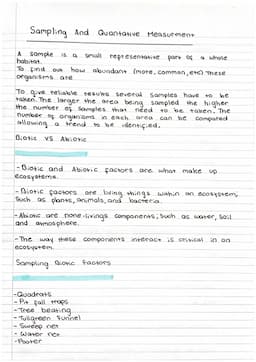 Sampling And Quantative Measurment
A sample is a small representative part of a whole
habitat.
To find out how abundant (more, common, etc) these
organisms are
To give reliable results several samples have to be
taken. The larger the area being sampled the higher
the number of samples that need to be taken. The
number of organisms in each area can be compared
allowing a trend to be identified.
Biotic vs Abiotic
-Biotic and Abiotic factors are what make up
ecosystems.
-Biotic factors are living things within an ecosystem;
such as plants, animals, and bacteria.
-Abiotic are none-livings components; such as water, soil
and atmosphere.
-The way these components interact is critical in an
ecosystem.
Sampling Biotic Factors
-Quadrats
-Pit fall traps
-Tree beating
-Tullgreen funnel
-Sweep net
-Water net
-Pooter